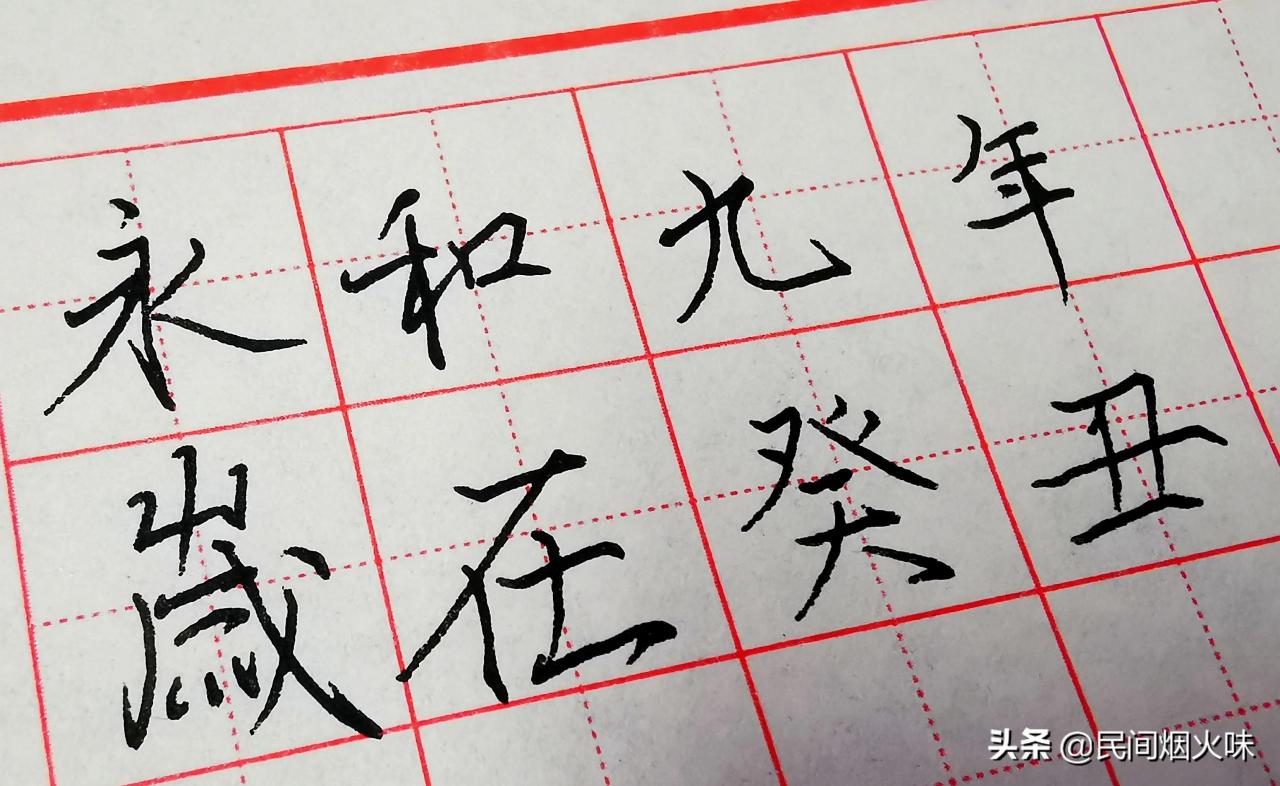 永和九年
歲在癸丑
头条 @民间烟火味